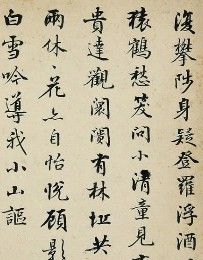 復攀陟身疑登羅浮酒
猿鶴愁笈問小清童見
貴達觀闤闠有林丘共
兩休花亦自怡悅顧影
白雪吟導我小山謳